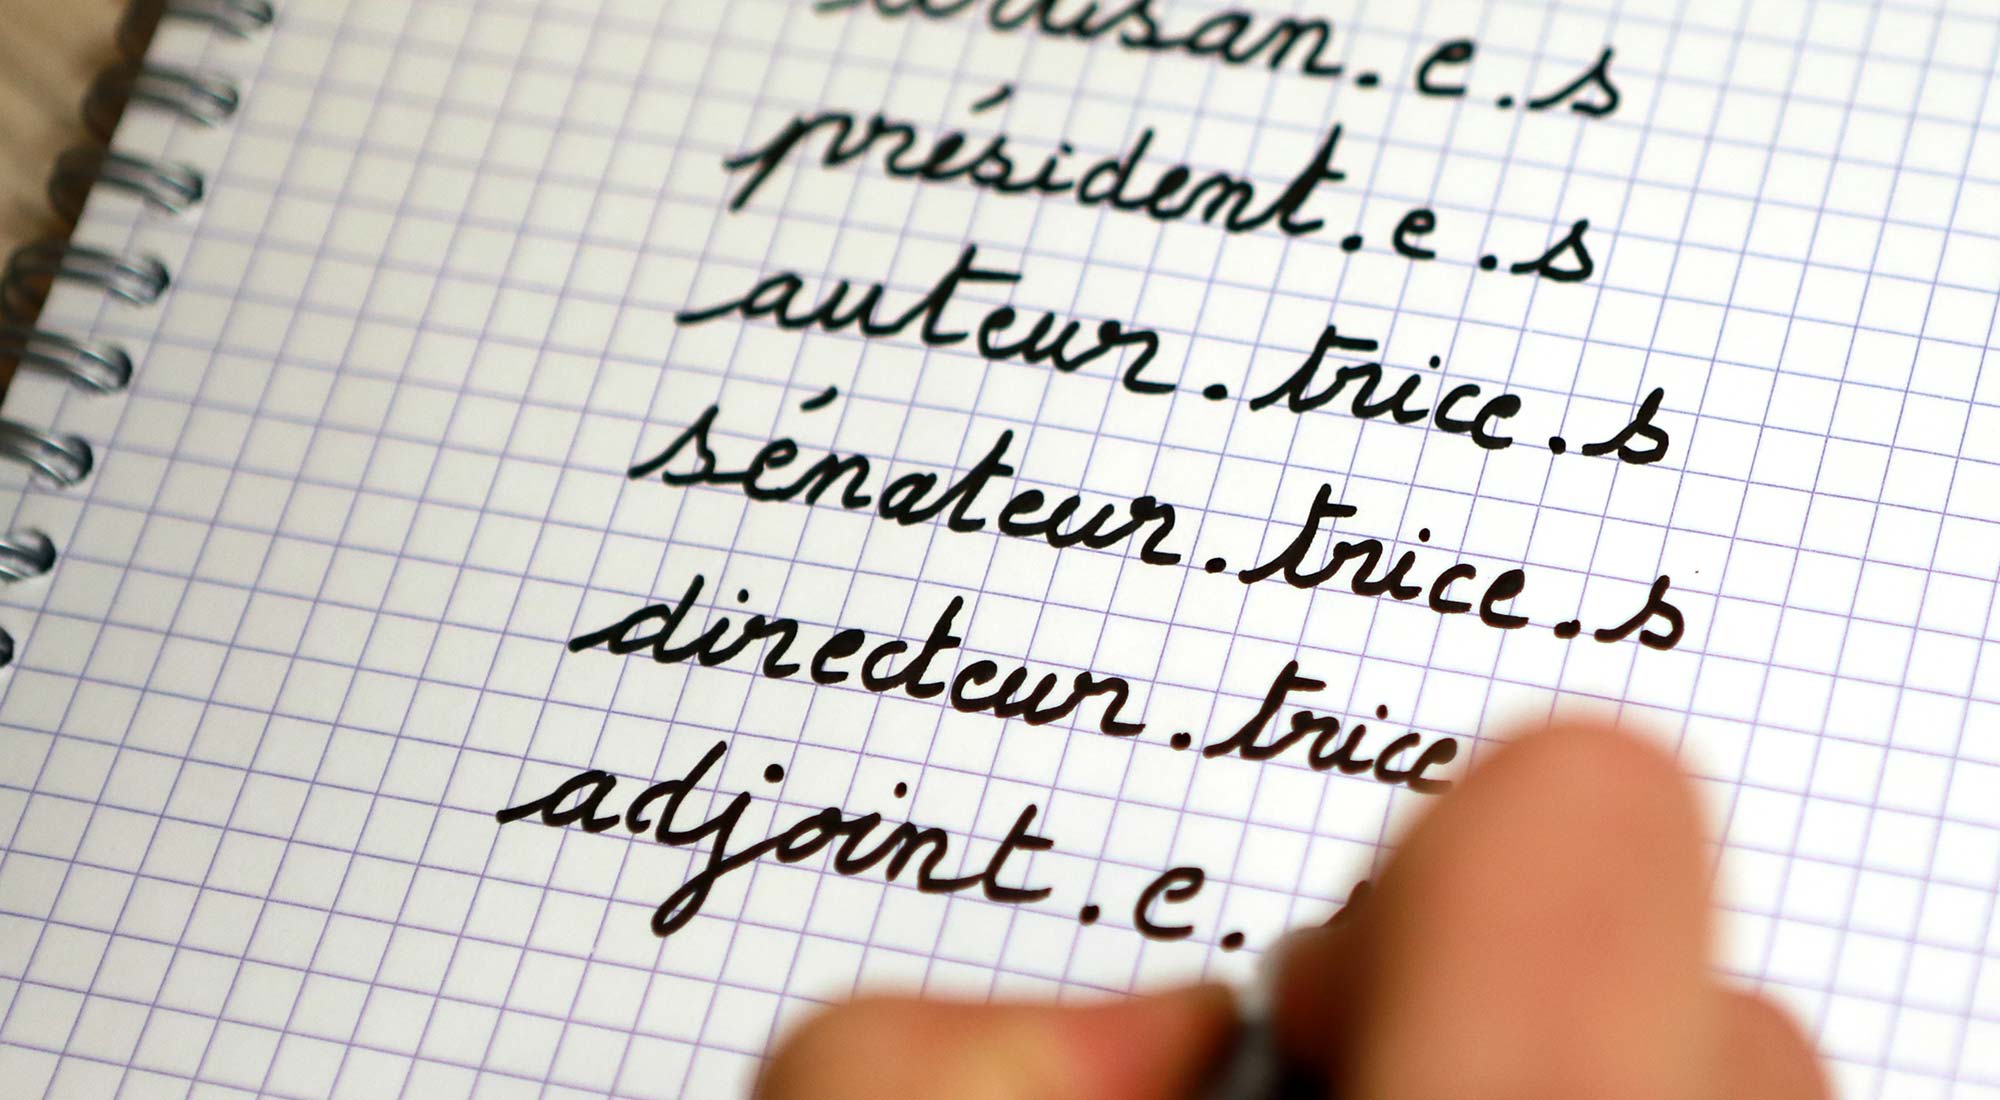 artisan.e.s
président.e.s
auteur.trice.s
sénateur.trice.s
directeur.trice
adjoint.e.